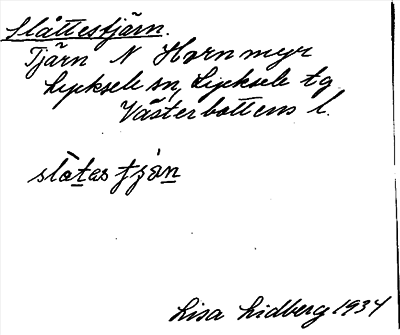 Slåttestjärn.
Tjärn N Hornmyr
Lycksele sn, Lycksele tg
Västerbottens l.
slòtas tjà̀n
Lisa Lidberg 1934